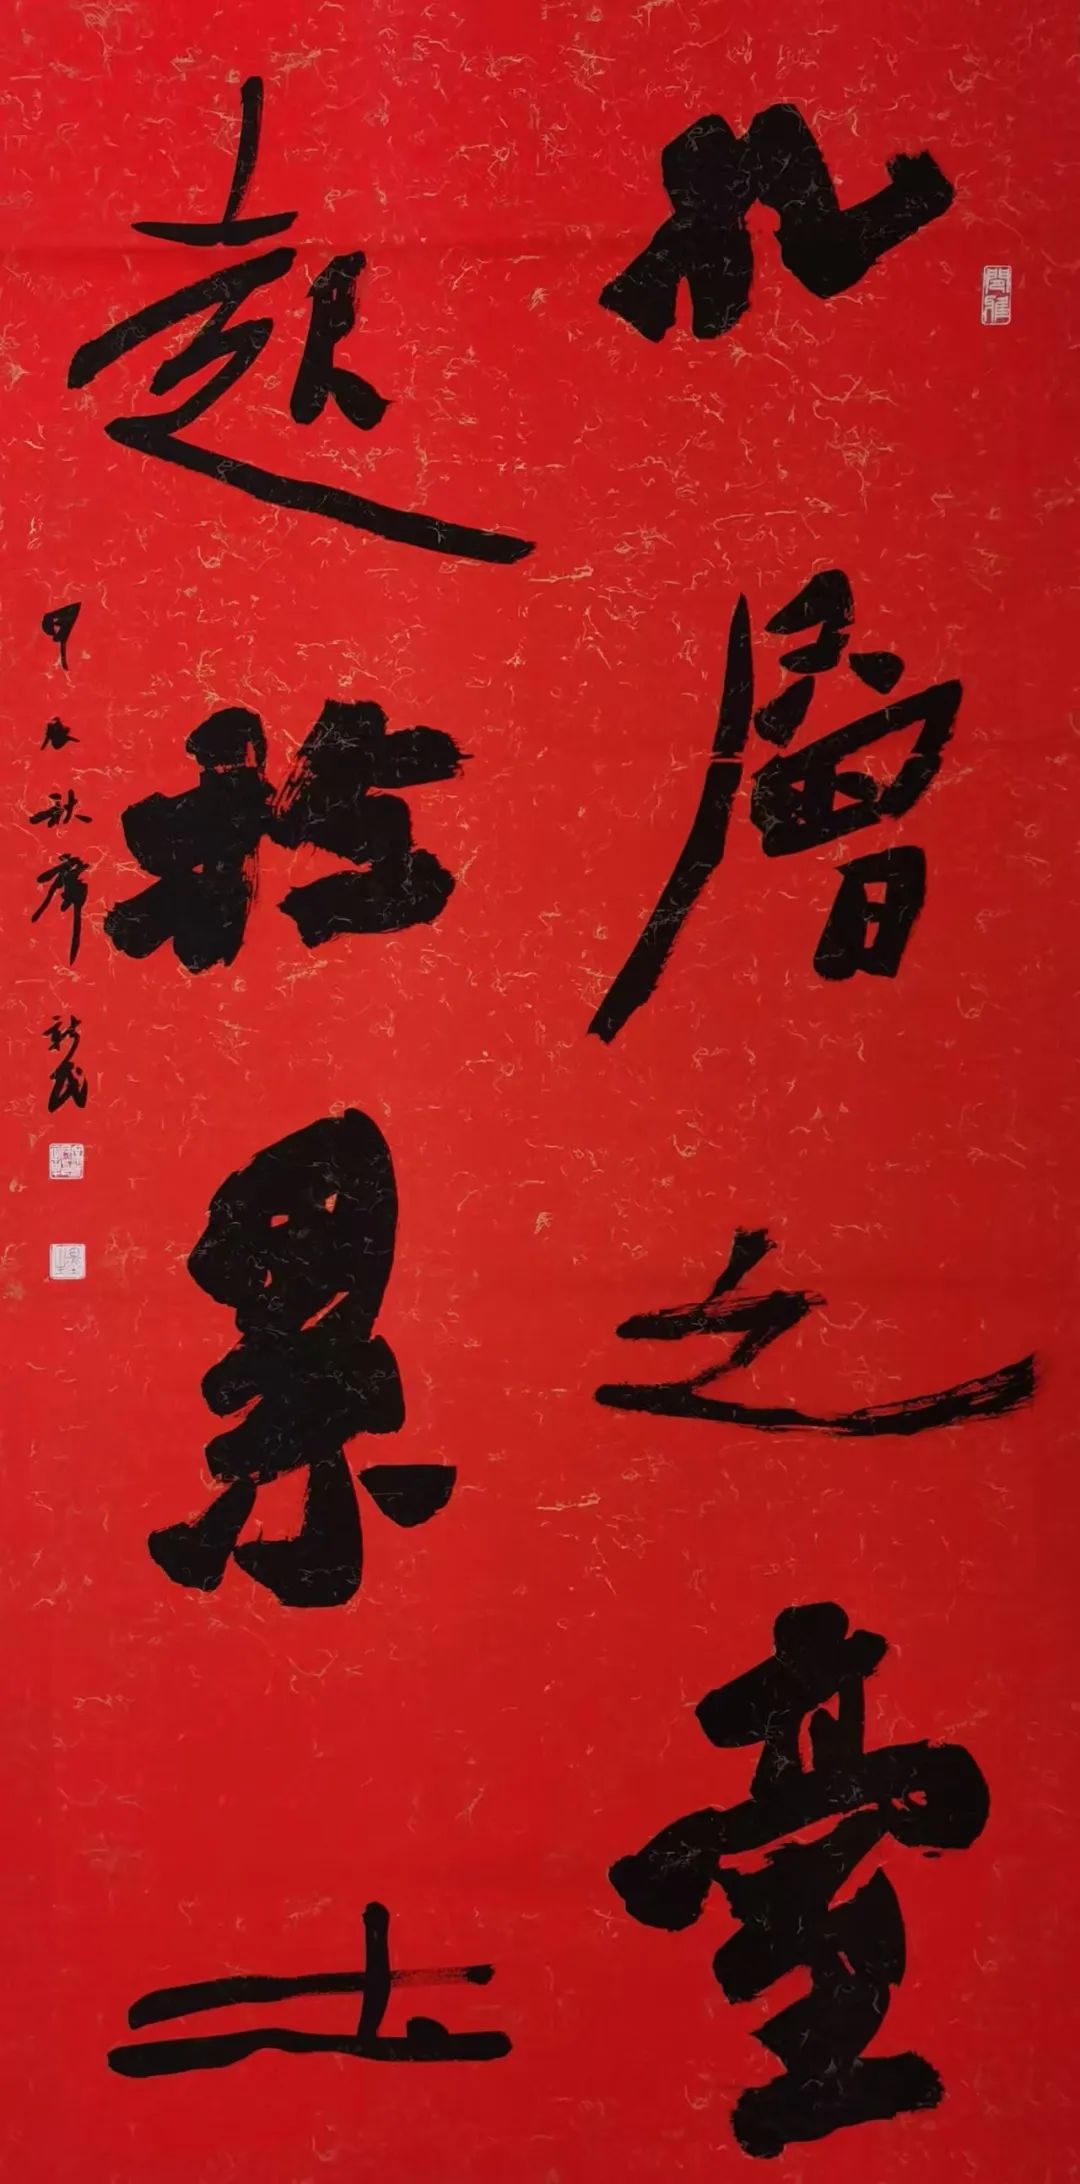 九層之臺
起於累土
甲辰秋 新民